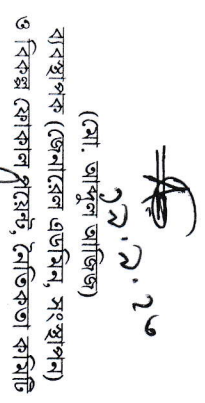 ২.৯.২৬
(মো. আব্দুল আজিজ)
ব্যবস্থাপক (জেনারেল এডমিন, সংস্থাপন)
ও বিকল্প ফোকাল পয়েন্ট, নৈতিকতা কমিটি